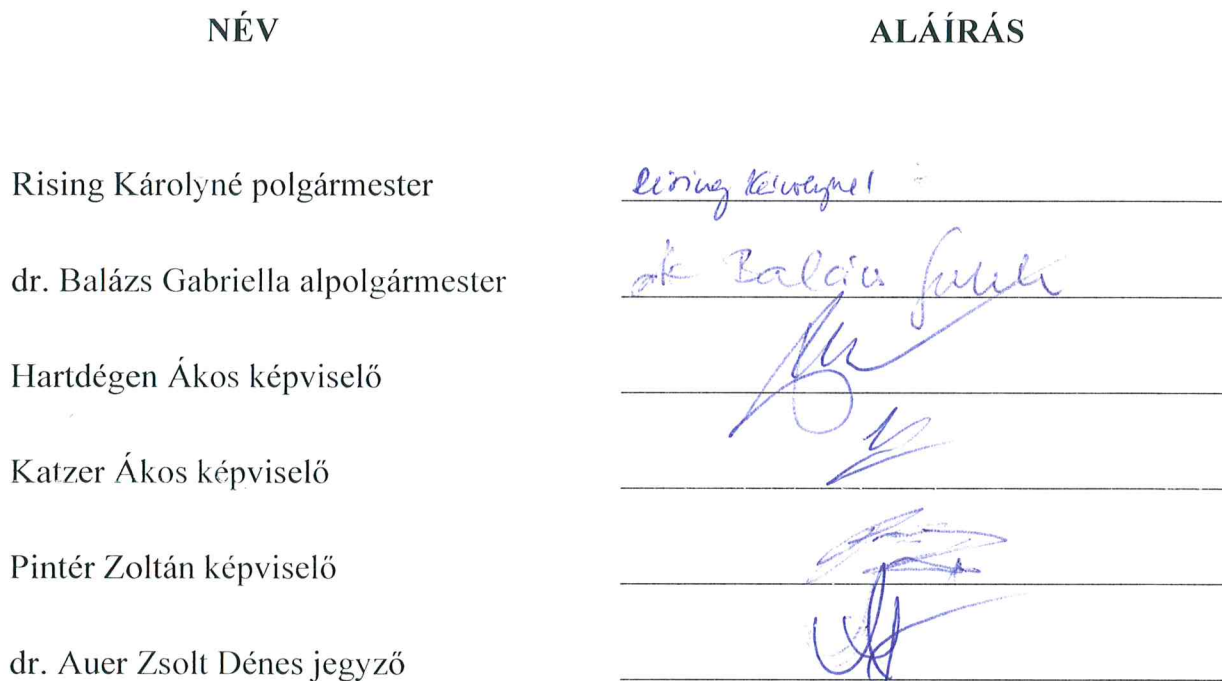 NÉV ALÁÍRÁS
Rising Károlyné polgármester Rising Károlyné
dr. Balázs Gabriella alpolgármester dr Balázs
Hartdégen Ákos képviselő
Katzer Ákos képviselő
Pintér Zoltán képviselő
dr. Auer Zsolt Dénes jegyző